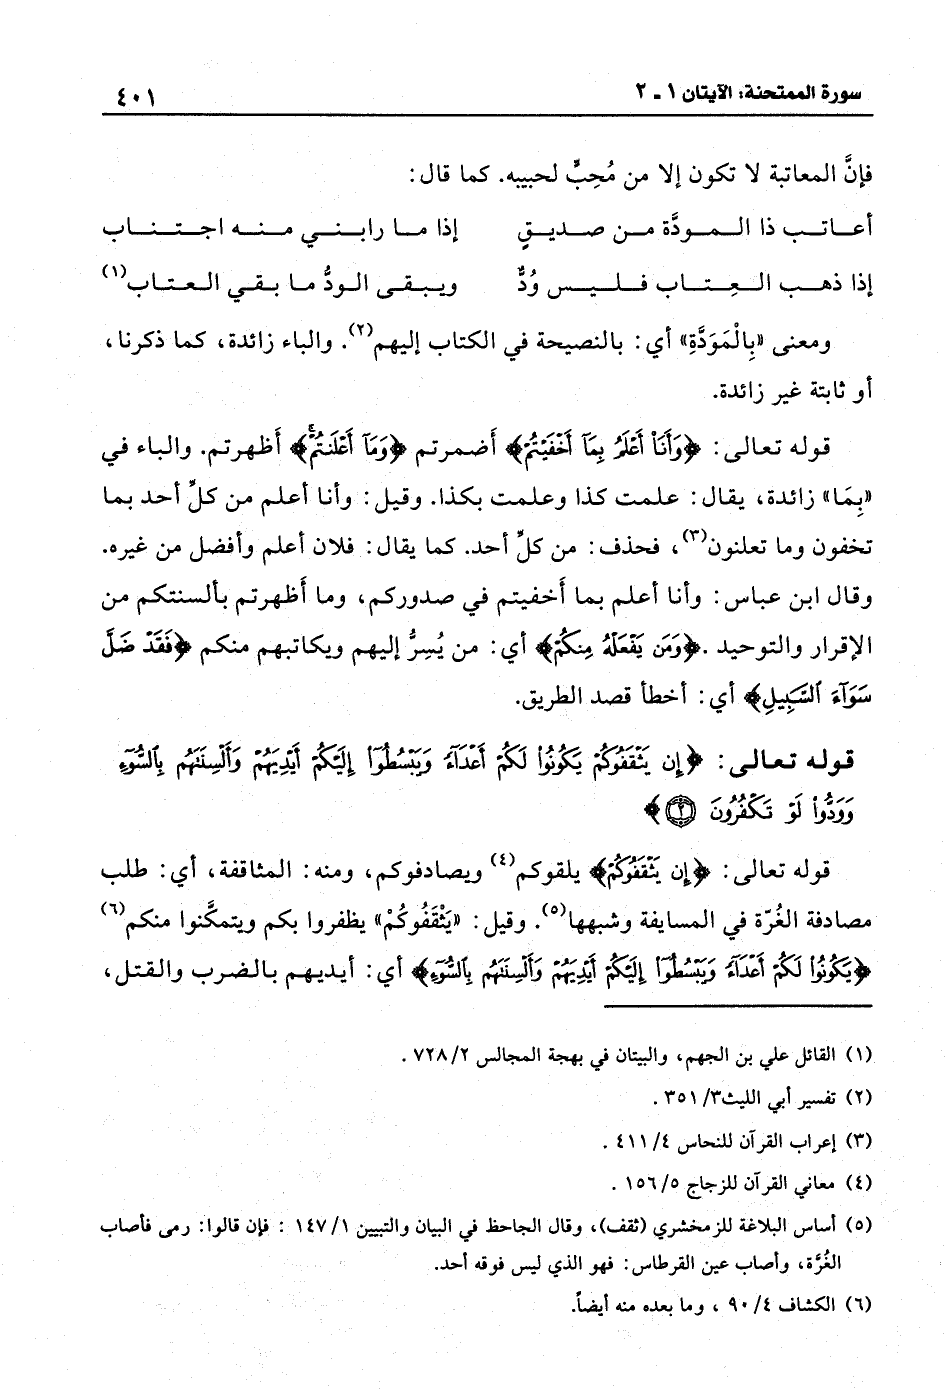 سورة الممتحنة: الآيتان ١ - ٢ ٤٠١
فإنَّ المعاتبة لا تكون إلا من مُحِبٍّ لحبيبه. كما قال:
أعاتب ذا المودَّة من صديقٍ إذا ما رابني منه اجتناب
إذا ذهب العِتاب فليس وُدٌّ ويبقى الودُّ ما بقي العتاب(١)
ومعنى «بِالْمَوَدَّةِ» أي: بالنصيحة في الكتاب إليهم(٢). والباء زائدة، كما ذكرنا،
أو ثابتة غير زائدة.
قوله تعالى: ﴿وَأَنَا۠ أَعْلَمُ بِمَآ أَخْفَيْتُمْ﴾ أضمرتم ﴿وَمَآ أَعْلَنتُمْ﴾ أظهرتم. والباء في
«بِمَا» زائدة، يقال: علمت كذا وعلمت بكذا. وقيل: وأنا أعلم من كلِّ أحد بما
تخفون وما تعلنون(٣)، فحذف: من كلِّ أحد. كما يقال: فلان أعلم وأفضل من غيره.
وقال ابن عباس: وأنا أعلم بما أخفيتم في صدوركم، وما أظهرتم بألسنتكم من
الإقرار والتوحيد .﴿وَمَن يَفْعَلْهُ مِنكُمْ﴾ أي: من يُسِرُّ إليهم ويكاتبهم منكم ﴿فَقَدْ ضَلَّ
سَوَآءَ ٱلسَّبِيلِ﴾ أي: أخطأ قصد الطريق.
قوله تعالى: ﴿إِن يَثْقَفُوكُمْ يَكُونُوا۟ لَكُمْ أَعْدَآءً وَيَبْسُطُوٓا۟ إِلَيْكُمْ أَيْدِيَهُمْ وَأَلْسِنَتَهُم بِٱلسُّوٓءِ
وَوَدُّوا۟ لَوْ تَكْفُرُونَ ٢﴾
قوله تعالى: ﴿إِن يَثْقَفُوكُمْ﴾ يلقوكم(٤) ويصادفوكم، ومنه: المثاقفة، أي: طلب
مصادفة الغُرّة في المسايفة وشبهها(٥). وقيل: «يَثْقَفُوكُمْ» يظفروا بكم ويتمكَّنوا منكم(٦)
﴿يَكُونُوا۟ لَكُمْ أَعْدَآءً وَيَبْسُطُوٓا۟ إِلَيْكُمْ أَيْدِيَهُمْ وَأَلْسِنَتَهُم بِٱلسُّوٓءِ﴾ أي: أيديهم بالضرب والقتل،
(١) القائل علي بن الجهم، والبيتان في بهجة المجالس ٢/ ٧٢٨ .
(٢) تفسير أبي الليث٣/ ٣٥١ .
(٣) إعراب القرآن للنحاس ٤/ ٤١١ .
(٤) معاني القرآن للزجاج ٥/ ١٥٦ .
(٥) أساس البلاغة للزمخشري (ثقف)، وقال الجاحظ في البيان والتبيين ١/ ١٤٧ : فإن قالوا: رمى فأصاب
الغُرَّة، وأصاب عين القرطاس: فهو الذي ليس فوقه أحد.
(٦) الكشاف ٤/ ٩٠ ، وما بعده منه أيضاً.